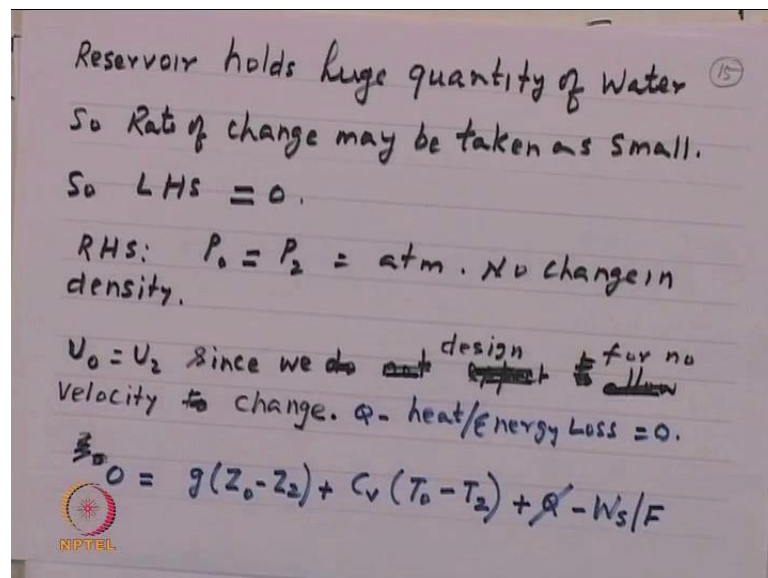 Reservoir holds huge quantity of water 15
So Rate of change may be taken as small.
So LHS = 0.
RHS: P₀ = P₂ = atm. No change in
density.
U₀ = U₂ since we design for no
velocity change. Q - heat/Energy Loss = 0.
0 = g(Z₀-Z₂) + Cᵥ (T₀-T₂) + Q - Ws/F
NPTEL